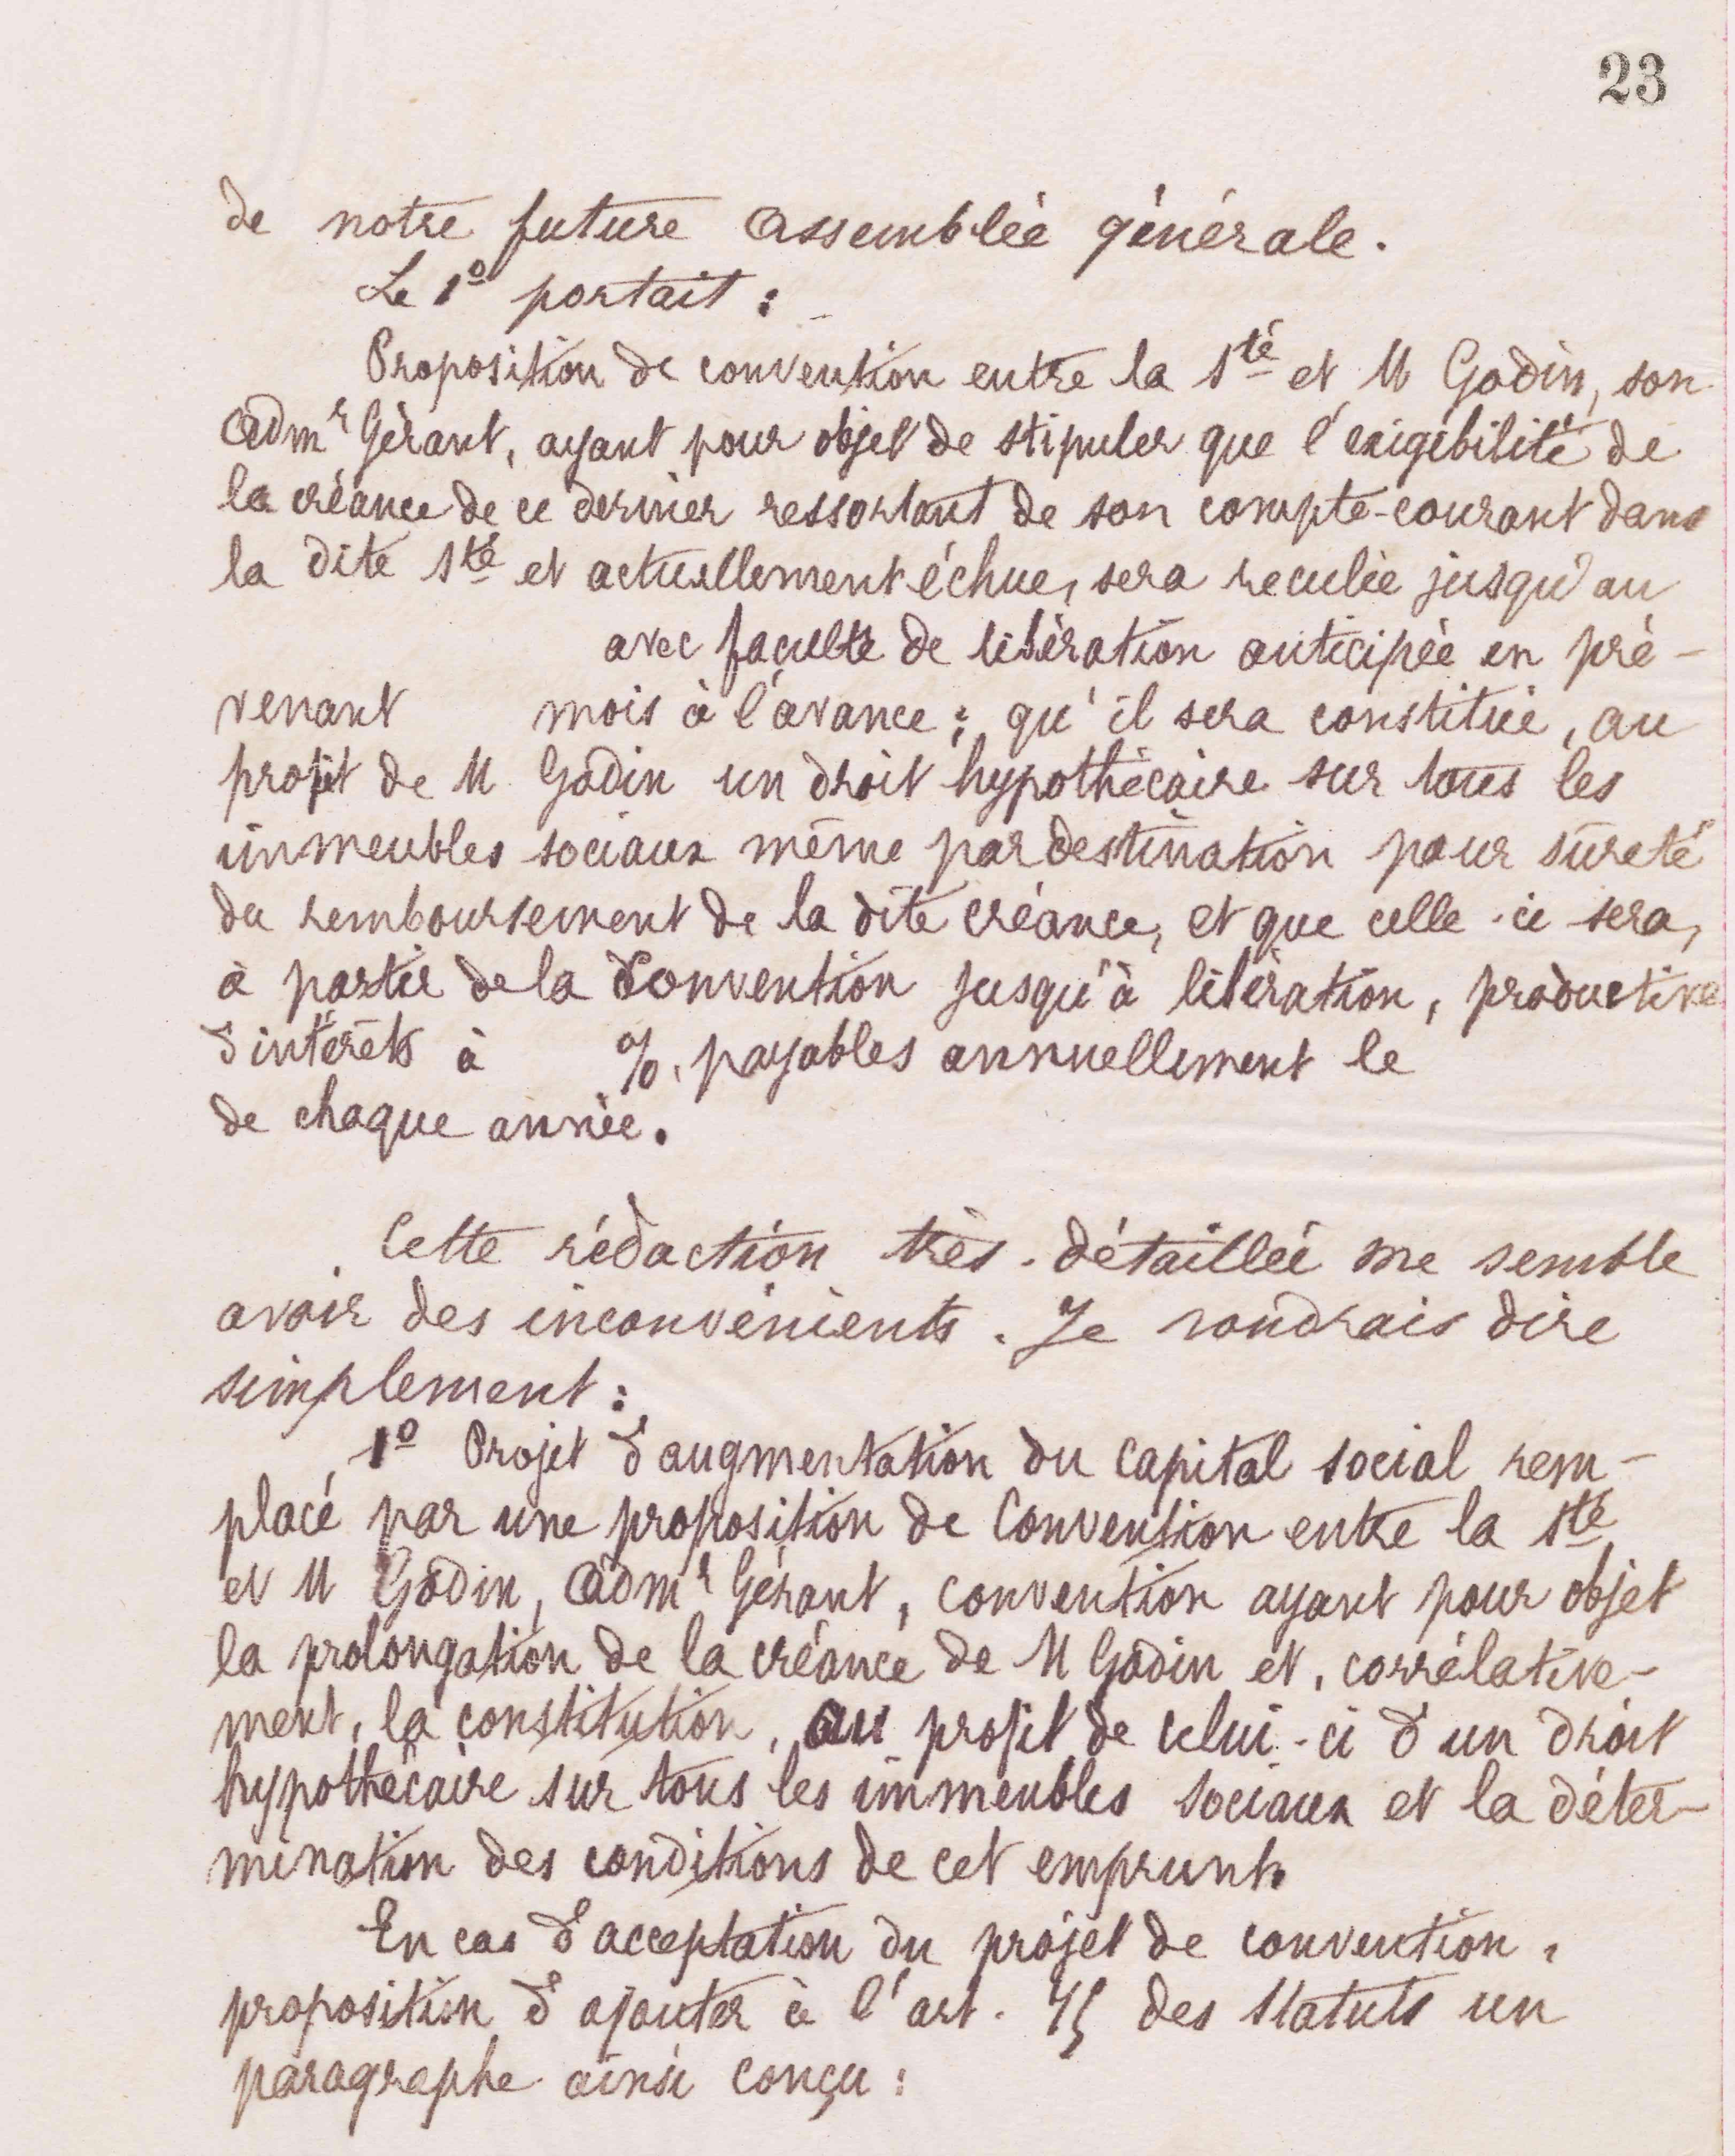 23
de notre future assemblée générale.
Le 1º portait :
Proposition de convention entre la Sté et M Godin, son
Admr Gérant, ayant pour objet de stipuler que l'exigibilité de
la créance de ce dernier ressortant de son compte-courant dans
la dite Sté et actuellement échue, sera reculée jusqu'au
avec faculté de libération anticipée en pré-
venant mois à l'avance ; qu'il sera constitué, au
profit de M Godin un droit hypothécaire sur tous les
immeubles sociaux même par destination pour sûreté
du remboursement de la dite créance, et que celle-ci sera,
à partir de la Convention jusqu'à libération, productive
d'intérêts à %, payables annuellement le
de chaque année.
Cette rédaction très-détaillée me semble
avoir des inconvénients. Je voudrais dire
simplement :
1º Projet d'augmentation du capital social rem-
placé par une proposition de Convention entre la Sté
et M Godin, Admr Gérant, convention ayant pour objet
la prolongation de la créance de M Godin et, corrélative-
ment, la constitution, au profit de celui-ci d'un droit
hypothécaire sur tous les immeubles sociaux et la déter-
mination des conditions de cet emprunt.
En cas d'acceptation du projet de convention,
proposition d'ajouter à l'art. des Statuts un
paragraphe ainsi conçu :